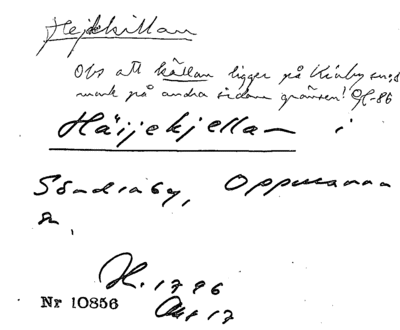 Hejdekillan
Obs att källan ligger på Kinby sns
mark på andra sidan gränsen! GH-86
Häijekjellan i
Söndraby, Oppmanna
sn.
H. 1796
Nr 10856 Akt 17